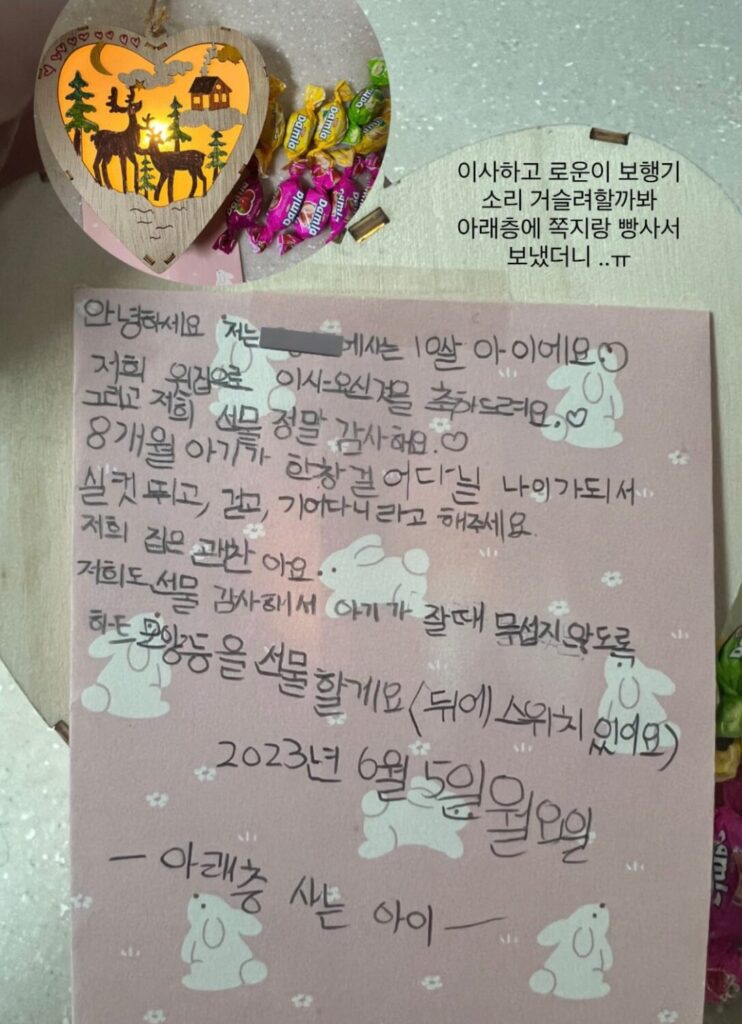 이사하고 로운이 보행기
소리 거슬려할까봐
아래층에 쪽지랑 빵사서
보냈더니 ..ㅠ
Damla
Damla
Damla
Damla
안녕하세요 저는 에사는 10살 아이에요♡
저희 윗집으로 이사오신걸을 축하드려요.♡
그리고 저희 선물 정말 감사해요.♡
8개월 아기가 한창걸어다닐 나이가되서
실컷 뛰고, 걷고, 기어다니라고 해주세요.
저희 집은 괜찬아요.
저희도 선물 감사해서 아기가 잘때 무섭지않도록
하트모양등을 선물할게요(뒤에 스위치있어요)
2023년 6월 5일월요일
- 아래층 사는 아이 -